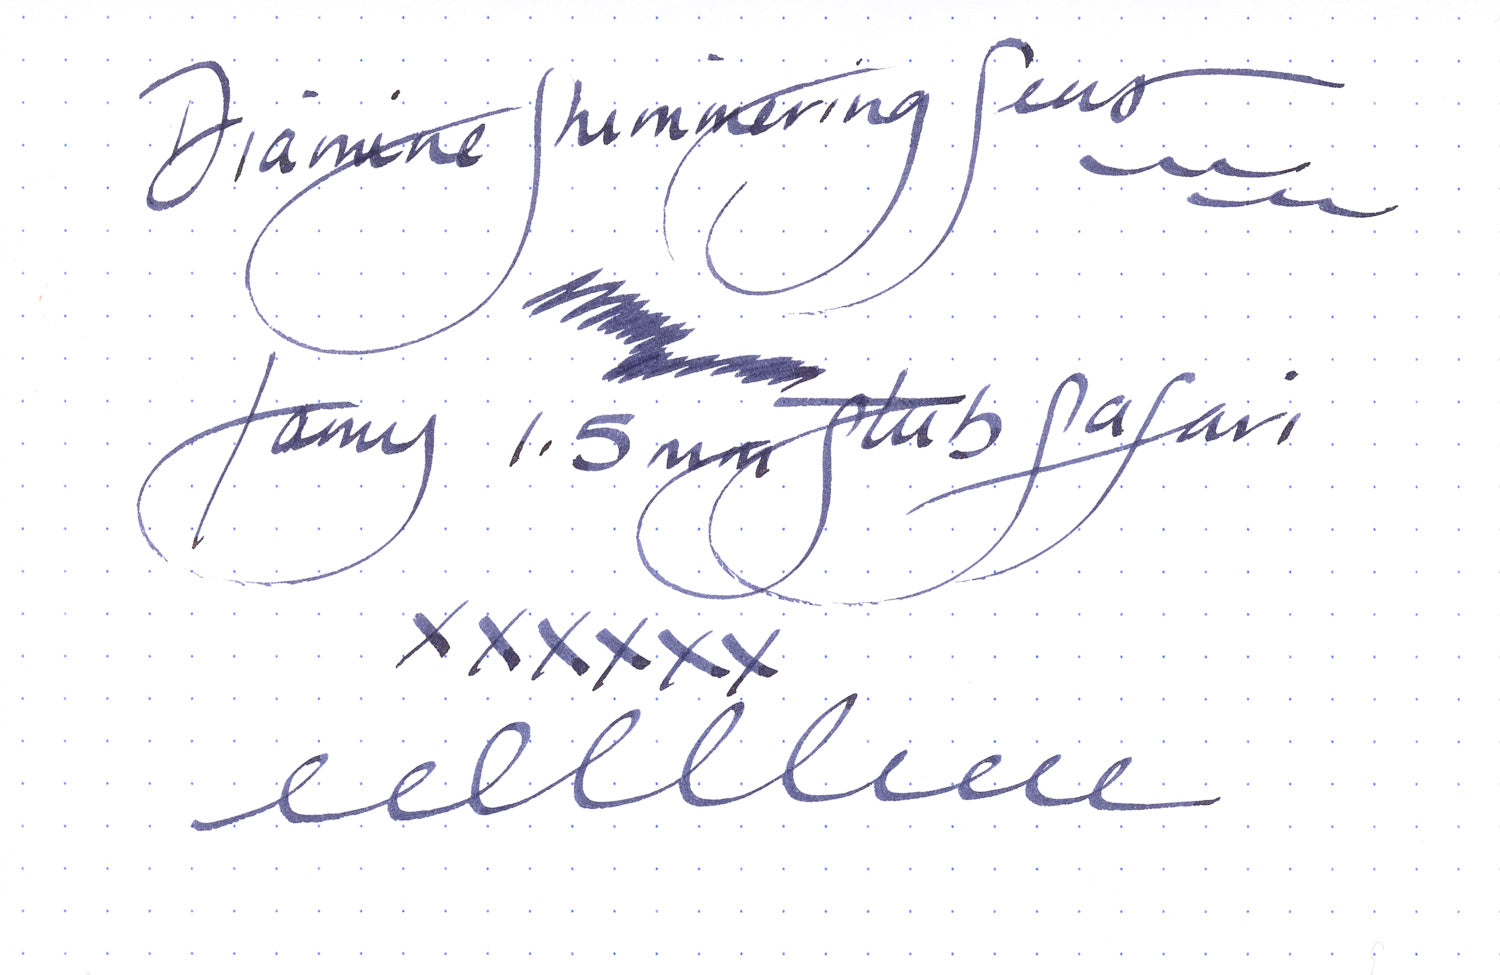 Diamine Shimmering Seas
Lamy 1.5mm Stub Safari
xxxxxx
eellllleee